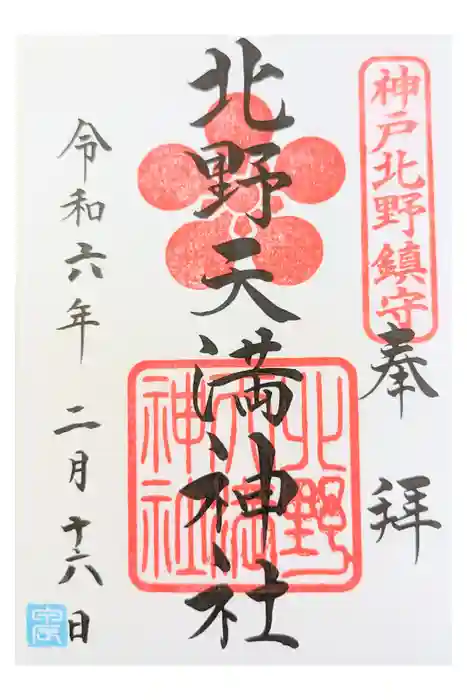 神戸北野鎮守
奉拝
北野天満神社
北野天満神社
令和六年 二月 十六日